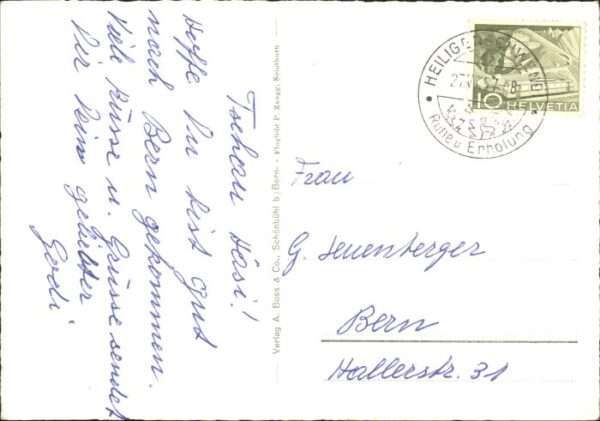 Tschau Hasi!
Hoffe Du bist gut
nach Bern gekommen.
Viele Küsse u. Grüsse sendet
Dir Dein geliebter
Godi
Verlag A. Boss & Co., Schönbühl b/Bern
HEILIGENSCHWENDI
Ruhe u Erholung
10 HELVETIA
Frau
G. Leuenberger
Bern
Hallerstr. 31